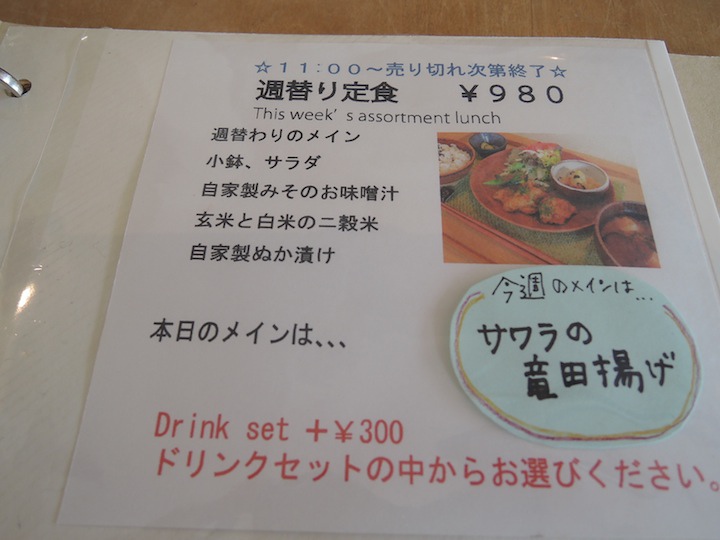 ☆11:00～売り切れ次第終了☆
週替り定食 ￥980
This week's assortment lunch
週替わりのメイン
小鉢、サラダ
自家製みそのお味噌汁
玄米と白米の二穀米
自家製ぬか漬け
今週のメインは...
サワラの
竜田揚げ
本日のメインは、、、
Drink set ＋￥300
ドリンクセットの中からお選びください。